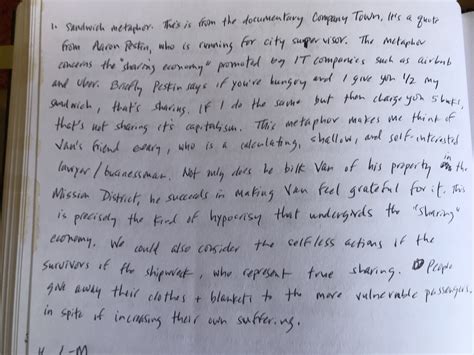 1. Sandwich metaphor. This is from the documentary Company Town. It's a quote
from Aaron Peskin, who is running for city supervisor. The metaphor
concerns the "sharing economy" promoted by IT companies such as airbnb
and Uber. Briefly Peskin says if you're hungry and I give you 1/2 my
sandwich, that's sharing. If I do the same but then charge you 5 bucks,
that's not sharing it's capitalism. This metaphor makes me think of
Van's friend who is a calculating, shallow, and self-interested
lawyer/businessman. Not only does he bilk Van of his property in the
Mission District, he succeeds in making Van feel grateful for it. This
is precisely the kind of hypocrisy that undergirds the "sharing"
economy. We could also consider the selfless actions of the
survivors of the shipwreck, who represent true sharing. People
give away their clothes + blankets to the more vulnerable passengers,
in spite of increasing their own suffering.